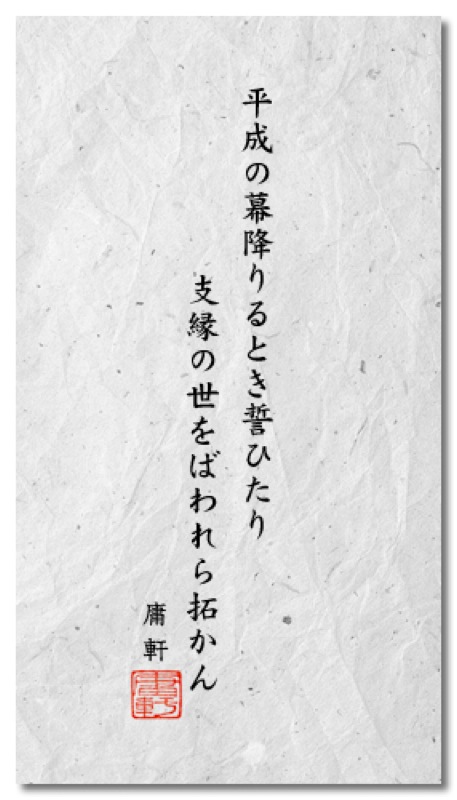 平成の幕降りるとき誓ひたり
支縁の世をばわれら拓かん
庸軒
庸軒